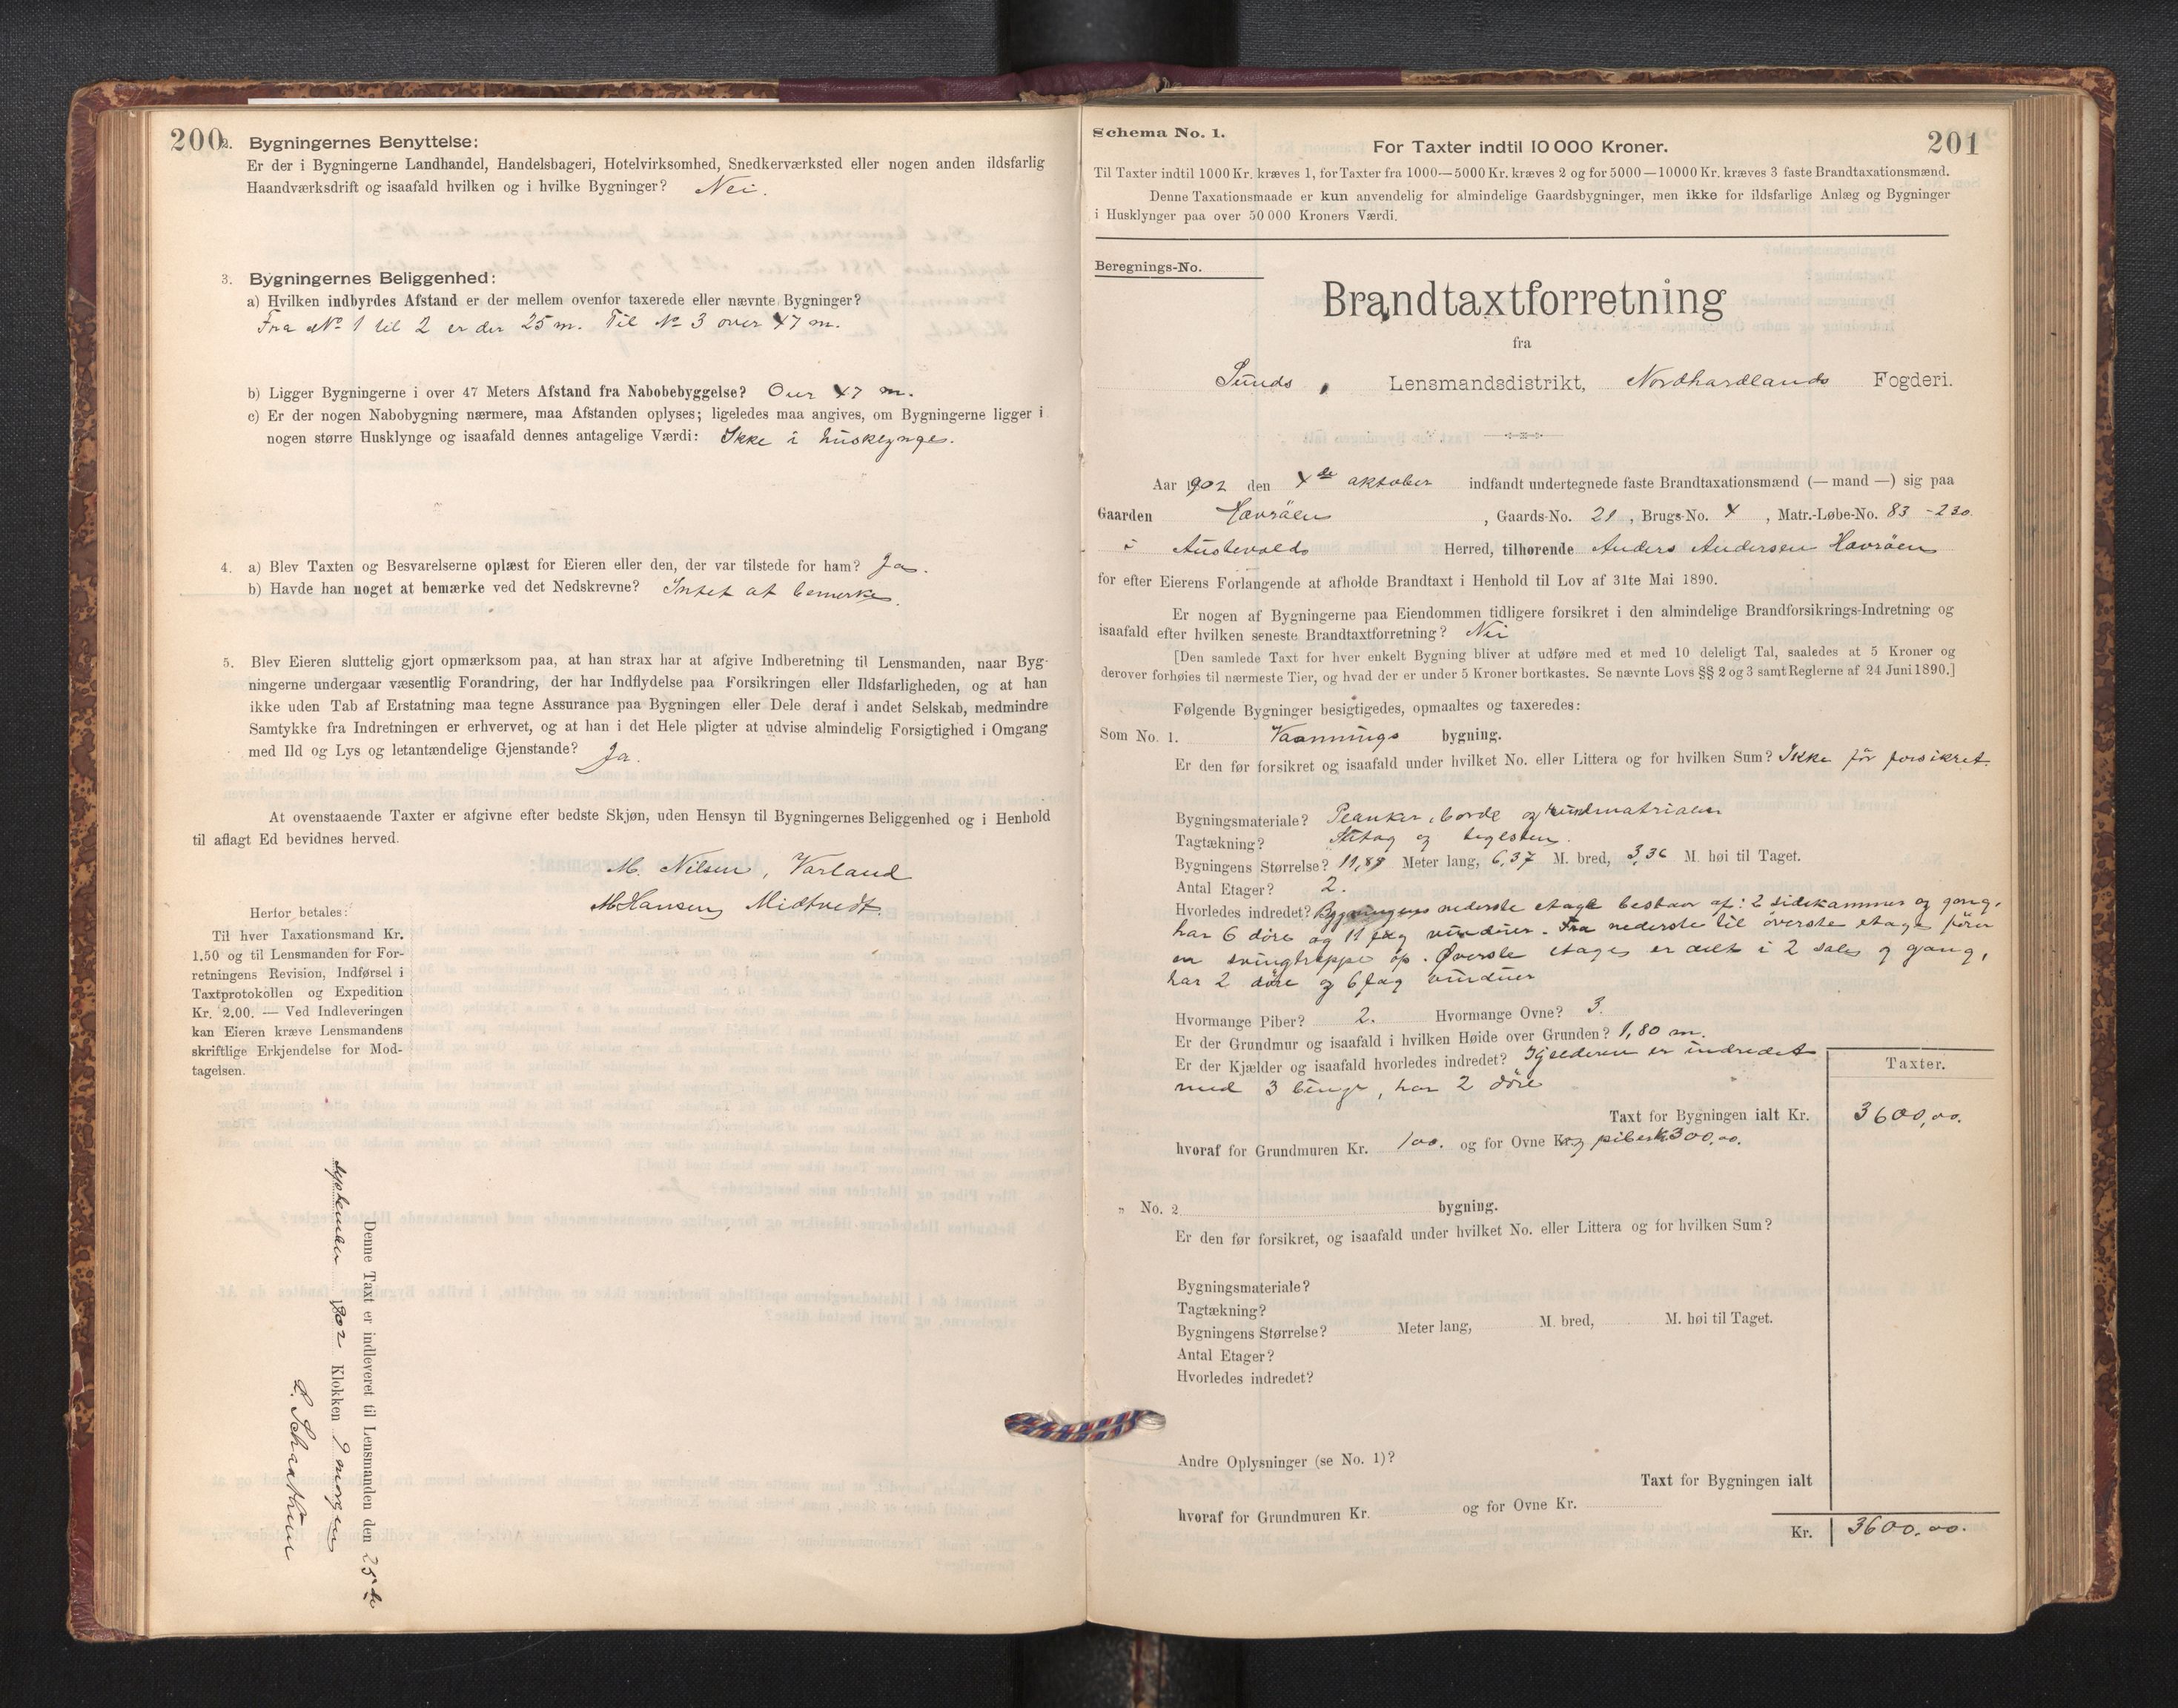 200
2. Bygningernes Benyttelse:
Er der i Bygningerne Landhandel, Handelsbageri, Hotelvirksomhed, Snedkerværksted eller nogen anden ildsfarlig
Haandværksdrift og isaafald hvilken og i hvilke Bygninger? Nei.
3. Bygningernes Beliggenhed:
a) Hvilken indbyrdes Afstand er der mellem ovenfor taxerede eller nævnte Bygninger?
Fra No 1 til 2 er der 25 m. Til No 3 over 47 m.
b) Ligger Bygningerne i over 47 Meters Afstand fra Nabobebyggelse? Over 47 m.
c) Er der nogen Nabobygning nærmere, maa Afstanden oplyses; ligeledes maa angives, om Bygningerne ligger i
nogen større Husklynge og isaafald dennes antagelige Værdi: Ikke i husklynge.
4. a) Blev Taxten og Besvarelserne oplæst for Eieren eller den, der var tilstede for ham? Ja.
b) Havde han noget at bemærke ved det Nedskrevne? Intet at bemerke.
5. Blev Eieren sluttelig gjort opmærksom paa, at han strax har at afgive Indberetning til Lensmanden, naar Byg-
ningerne undergaar væsentlig Forandring, der har Indflydelse paa Forsikringen eller Ildsfarligheden, og at han
ikke uden Tab af Erstatning maa tegne Assurance paa Bygningen eller Dele deraf i andet Selskab, medmindre
Samtykke fra Indretningen er erhvervet, og at han i det Hele pligter at udvise almindelig Forsigtighed i Omgang
med Ild og Lys og letantændelige Gjenstande? Ja.
At ovenstaaende Taxter er afgivne efter bedste Skjøn, uden Hensyn til Bygningernes Beliggenhed og i Henhold
til aflagt Ed bevidnes herved.
M. Nilsen, Varland
M Hansen Midtvedt.
Herfor betales:
Til hver Taxationsmand Kr.
1.50 og til Lensmanden for For-
retningens Revision, Indførsel i
Taxtprotokollen og Expedition
Kr. 2.00. — Ved Indleveringen
kan Eieren kræve Lensmandens
skriftlige Erkjendelse for Mod-
tagelsen.
Denne Taxt er indleveret til Lensmanden den 25de
september 1902 Klokken 9 morgen
Schema No. 1.
For Taxter indtil 10 000 Kroner.
201
Til Taxter indtil 1000 Kr. kræves 1, for Taxter fra 1000—5000 Kr. kræves 2 og for 5000—10000 Kr. kræves 3 faste Brandtaxationsmænd.
Denne Taxationsmaade er kun anvendelig for almindelige Gaardsbygninger, men ikke for ildsfarlige Anlæg og Bygninger
i Husklynger paa over 50 000 Kroners Værdi.
Beregnings-No.
Brandtaxtforretning
fra
Sunds Lensmandsdistrikt, Nordhordlands Fogderi.
Aar 1902 den 4de oktober indfandt undertegnede faste Brandtaxationsmænd (— mand —) sig paa
Gaarden Havröen, Gaards-No. 21, Brugs-No. 4, Matr.-Løbe-No. 83 - 230
i Austevolds Herred, tilhørende Anders Andersen Havröen
for efter Eierens Forlangende at afholde Brandtaxt i Henhold til Lov af 31te Mai 1890.
Er nogen af Bygningerne paa Eiendommen tidligere forsikret i den almindelige Brandforsikrings-Indretning og
isaafald efter hvilken seneste Brandtaxtforretning? Nei
[Den samlede Taxt for hver enkelt Bygning bliver at udføre med et med 10 deleligt Tal, saaledes at 5 Kroner og
derover forhøies til nærmeste Tier, og hvad der er under 5 Kroner bortkastes. Se nævnte Lovs §§ 2 og 3 samt Reglerne af 24 Juni 1890.]
Følgende Bygninger besigtigedes, opmaaltes og taxeredes:
Som No. 1. Vaanings bygning.
Er den før forsikret og isaafald under hvilket No. eller Littera og for hvilken Sum? Ikke för forsikret.
Bygningsmateriale? Planker, borde og
Tagtækning? og teglsten.
Bygningens Størrelse? 11,88 Meter lang, 6,37 M. bred, 3,36 M. høi til Taget.
Antal Etager? 2.
Hvorledes indredet? Bygningens nederste etage bestaar af: 2 sidekammer og gang,
har 6 döre og 11 fag vinduer. Fra nederste til överste etage förer
en svingtrappe op. Øverste etage er delt i 2 sale og gang,
har 2 döre og 6 fag vinduer
Hvormange Piber? 2. Hvormange Ovne? 3.
Er der Grundmur og isaafald i hvilken Høide over Grunden? 1,80 m.
Er der Kjælder og isaafald hvorledes indredet? Kjelderen er indredet
med 3 binge, har 2 döre
Taxter.
Taxt for Bygningen ialt Kr. 3600,00.
hvoraf for Grundmuren Kr. 100. og for Ovne Kr. og piber k 300,00.
" No. 2 bygning.
Er den før forsikret, og isaafald under hvilket No. eller Littera og for hvilken Sum?
Bygningsmateriale?
Tagtækning?
Bygningens Størrelse? Meter lang, M. bred, M. høi til Taget.
Antal Etager?
Hvorledes indredet?
Andre Oplysninger (se No. 1)?
Taxt for Bygningen ialt
hvoraf for Grundmuren Kr. og for Ovne Kr.
Kr. 3600.00.